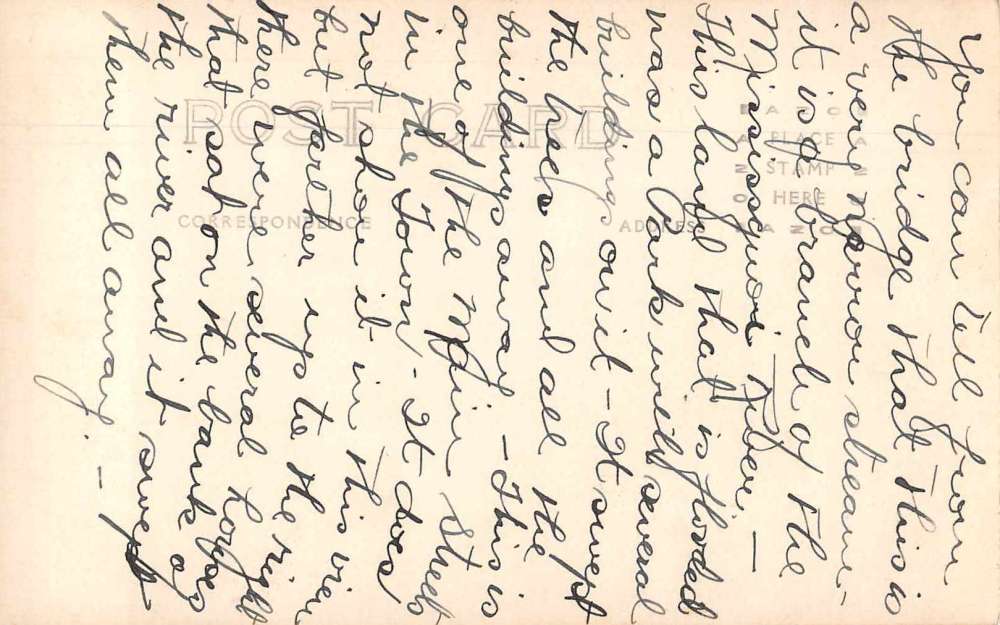 You can tell from
the bridge that this is
a very narrow stream -
it is a branch of the
Missisquoi River. -
This land that is flooded
was a Park with several
buildings on it - It swept
the trees and all the
buildings away - This is
one of the Main Streets
in the Town - It does
not show it in this view
but farther up to the right
there were several houses
that sat on the bank of
the river and it swept
them all away. -
POST CARD
CORRESPONDENCE
ADDRESS
AZO
PLACE
STAMP
HERE
AZO